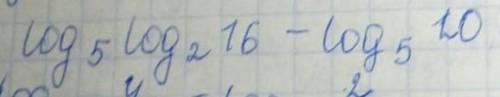 log₅ log₂ 16 - log₅ 20